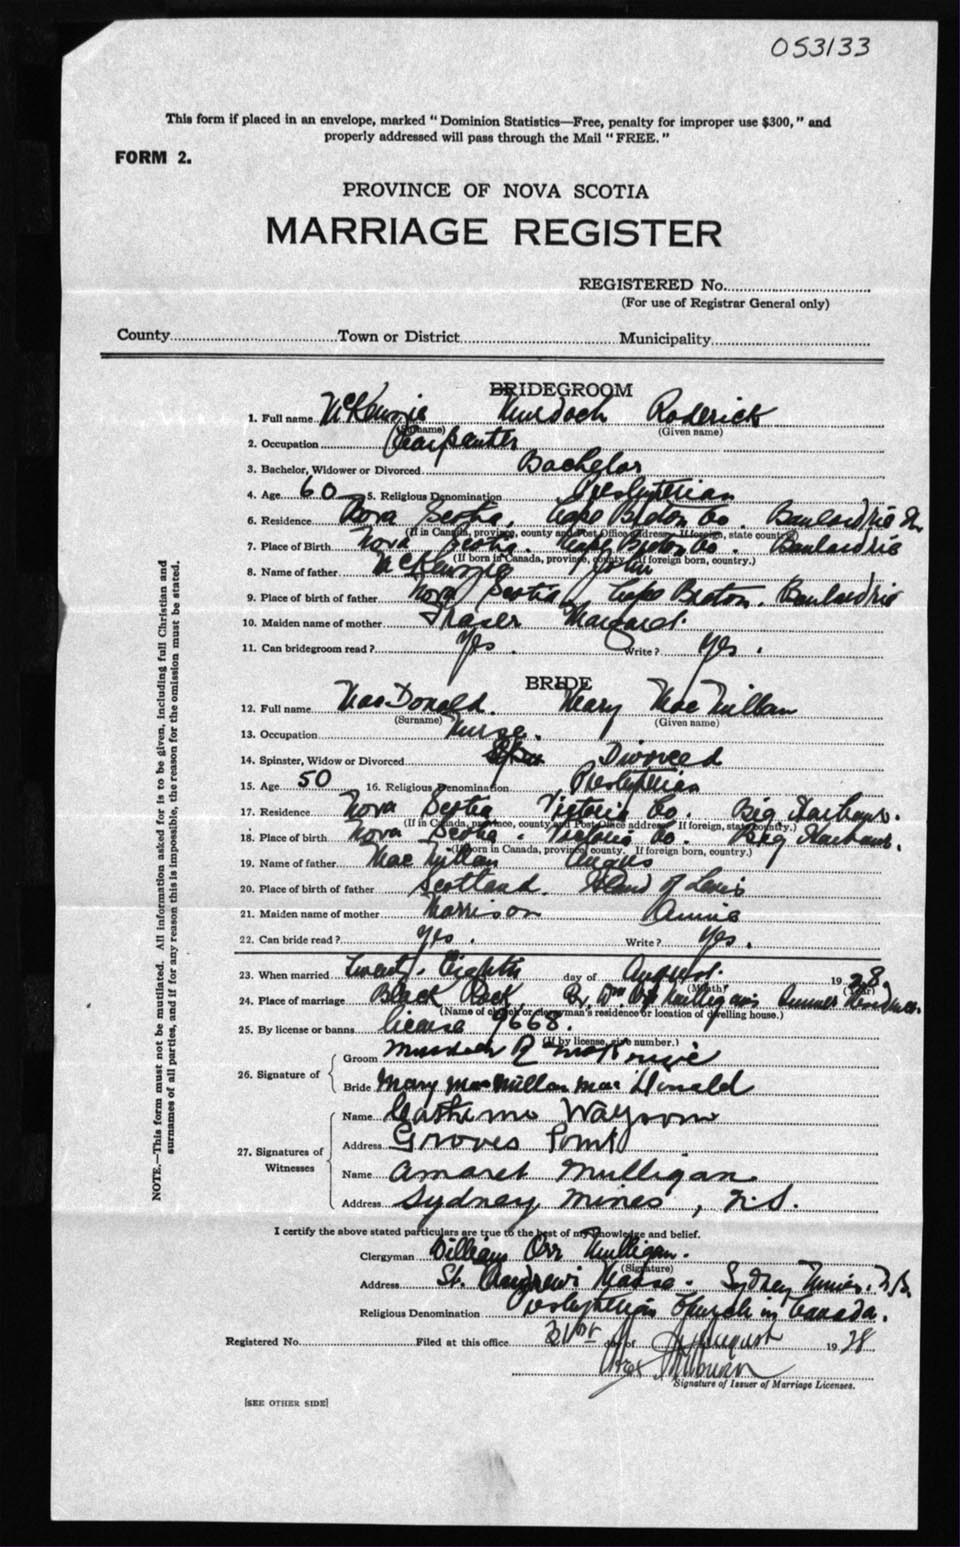 053133
This form if placed in an envelope, marked "Dominion Statistics—Free, penalty for improper use $300," and
properly addressed will pass through the Mail "FREE."
FORM 2.
PROVINCE OF NOVA SCOTIA
MARRIAGE REGISTER
REGISTERED No.
(For use of Registrar General only)
County Town or District Municipality
BRIDEGROOM
1. Full name McKenzie Murdoch Roderick
(Surname) (Given name)
2. Occupation Carpenter
3. Bachelor, Widower or Divorced Bachelor
4. Age 60 5. Religious Denomination Presbyterian
6. Residence Nova Scotia, Cape Breton Co. Boulardrie
(If in Canada, province, county and Post Office address. If foreign, state country)
7. Place of Birth Nova Scotia. Cape Breton Co. Boulardrie
(If born in Canada, province, county. If foreign born, country.)
8. Name of father McKenzie John
9. Place of birth of father Nova Scotia Cape Breton. Boulardrie
10. Maiden name of mother Fraser Margaret.
11. Can bridegroom read? Yes. Write? Yes.
BRIDE
12. Full name MacDonald. Mary MacMillan
(Surname) (Given name)
13. Occupation Nurse.
14. Spinster, Widow or Divorced Divorced
15. Age 50 16. Religious Denomination Presbyterian
17. Residence Nova Scotia Victoria Co. Big Harbour.
(If in Canada, province, county and Post Office address. If foreign, state country.)
18. Place of birth Nova Scotia. Victoria Co. Big Harbour.
(If born in Canada, province, county. If foreign born, country.)
19. Name of father MacMillan Angus
20. Place of birth of father Scotland. Island of Lewis
21. Maiden name of mother Morrison Annie
22. Can bride read? Yes. Write? Yes.
23. When married Twenty Eighth day of August. 1928
(Month) (Year)
24. Place of marriage Black Rock, Rv. Wm. Orr Mulligan's Summer Residence.
(Name of church or clergyman's residence or location of dwelling house.)
25. By license or banns license 9668.
(If by license, give number.)
26. Signature of
Groom Murdoch R MacKenzie
Bride Mary MacMillan MacDonald
27. Signatures of Witnesses
Name
Address Groves Point
Name Amaret Mulligan
Address Sydney Mines, N.S.
I certify the above stated particulars are true to the best of my knowledge and belief.
Clergyman William Orr Mulligan.
(Signature)
Address St. Andrew's Manse. Sydney Mines. N.S.
Religious Denomination Presbyterian Church in Canada.
Registered No. Filed at this office 31st day of August 1928
Signature of Issuer of Marriage Licenses.
[SEE OTHER SIDE]
NOTE.—This form must not be mutilated. All information asked for is to be given, including full Christian and
surnames of all parties, and if for any reason this is impossible, the reason for the omission must be stated.